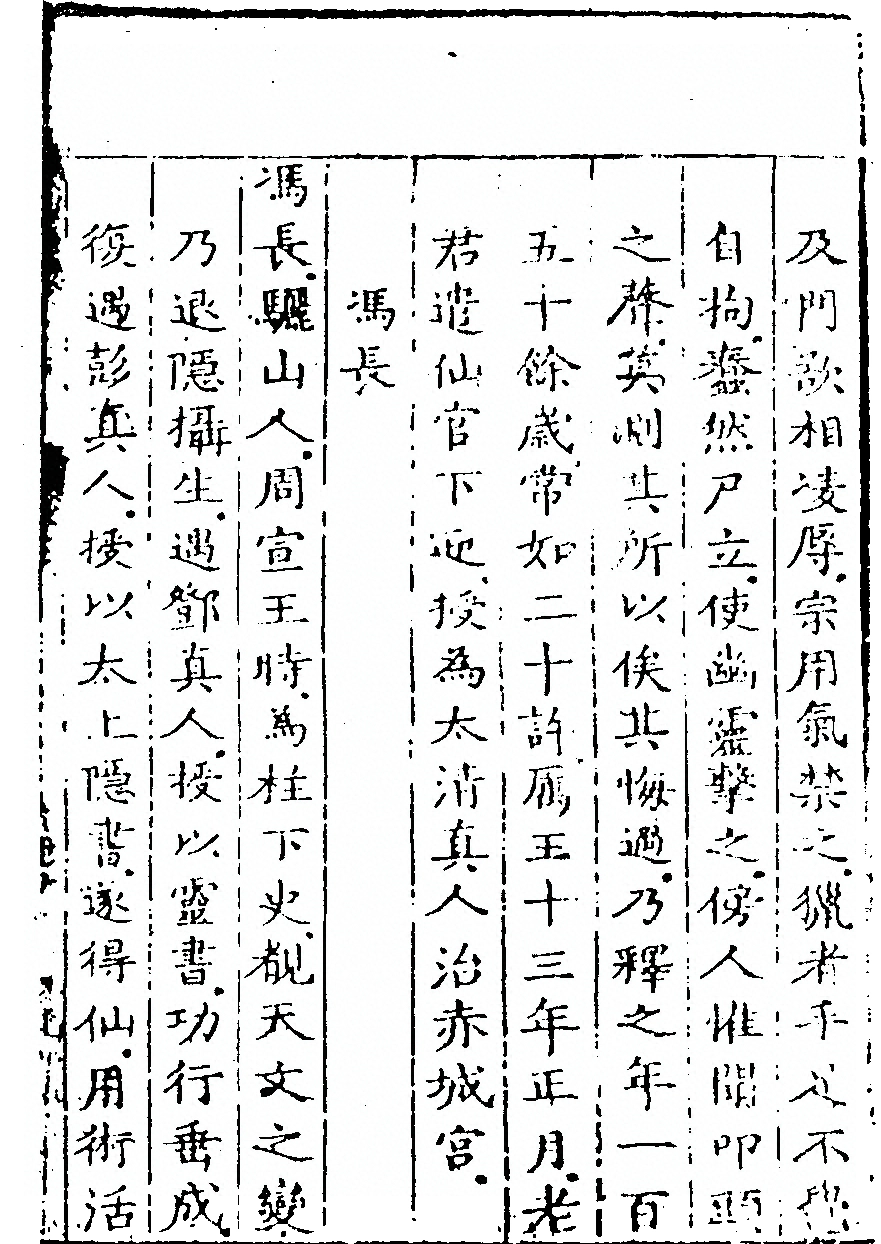 及門欲相凌辱宗用氣禁之獵者手足不覺
自拘蠢然尸立使幽靈擊之傍人惟聞叩頭
之聲莫測其所以俟其悔過乃釋之年一百
五十餘歲常如二十許厲王十三年正月老
君遣仙官下迎授為太清真人治赤城宮
馮長
馮長驪山人周宣王時為柱下史覩天文之變
乃退隱攝生遇鄧真人授以靈書功行垂成
復遇彭真人授以太上隱書遂得仙用術活